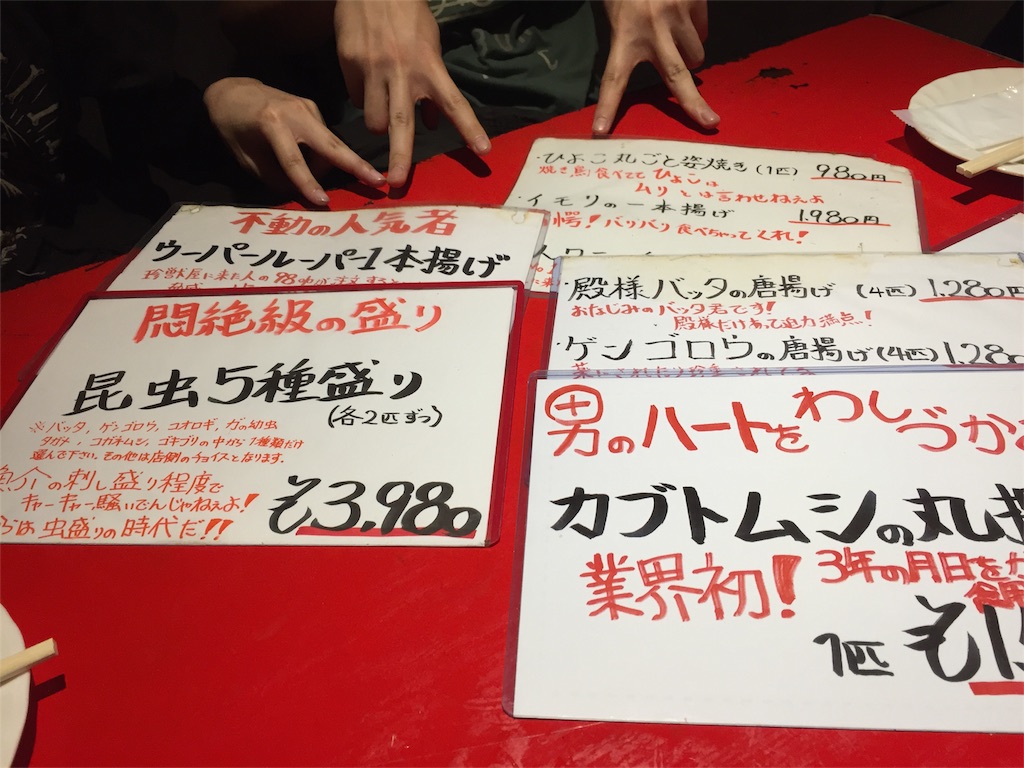 ・ひよこ丸ごと姿焼き(1匹) 980円
焼き鳥食べてて ひよこは
ムリとは言わせねぇよ
・イモリの一本揚げ 1,980円
愕!バリバリ食べちゃってくれ!
不動の人気者
ウーパールーパー1本揚げ
珍獣屋に来た人の98%が注文する
・殿様バッタの唐揚げ (4匹) 1,280円
おなじみのバッタ君です!
殿様だけあって迫力満点!
・ゲンゴロウの唐揚げ(4匹) 1,280
悶絶級の盛り
昆虫5種盛り
(各2匹ずつ)
※バッタ,ゲンゴロウ,コオロギ,ガの幼虫
タガメ,コガネムシ,ゴキブリの中から1種類だけ
選んで下さい。その他は店側のチョイスとなります。
魚介の刺し盛り程度で
キャーキャー騒いでんじゃねぇよ!
らは虫盛りの時代だ!!
¥3,980
男のハートをわしづかみ
カブトムシの丸揚
業界初!
3年の月日を
1匹 ¥1